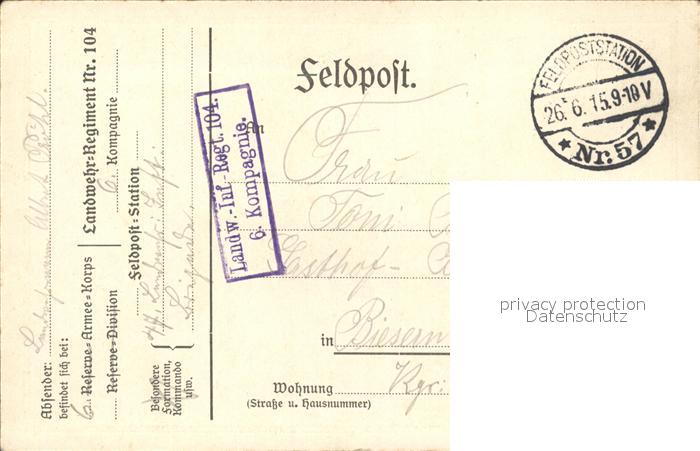 Feldpost.
FELDPOSTSTATION
26. 6. 15. 9-10 V
* Nr. 57 *
Landw.-Inf.-Regt. 104.
6. Kompagnie.
An
Frau
Toni
Gasthof-
in Biesern
Wohnung Kgr.
(Straße u. Hausnummer)
Absender: Albert
befindet sich bei:
6. Reserve-Armee-Korps
Reserve-Division
Landwehr-Regiment Nr. 104
6. Kompagnie
Feldpost-Station
Besondere
Formation,
Kommando
usw.
47. Landwehr Inft.
Brigade.
privacy protection
Datenschutz